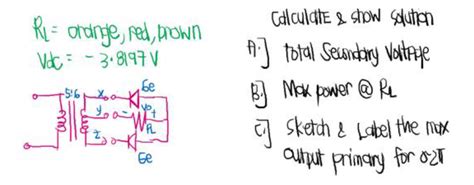 RL = orange, red, brown
Vdc = - 3.8197 V
5:6
x
Ge
y
- Vo +
RL
z
Ge
Calculate & show solution
A.] total Secondary Voltage
B.] Max power @ RL
C.] Sketch & Label the max
output primary for 0-2π